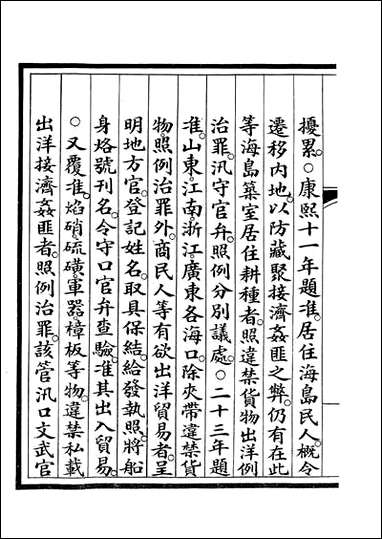 擾累。○康熙十一年題准。居住海島民人。概令
遷移內地。以防藏聚接濟姦匪之弊。仍有在此
等海島築室居住耕種者。照違禁貨物出洋例
治罪。汛守官弁。照例分別議處。○二十三年題
准。山東江南浙江廣東各海口。除夾帶違禁貨
物。照例治罪外。商民人等有欲出洋貿易者。呈
明地方官。登記姓名。取具保結。給發執照。將船
身烙號刊名。令守口官弁查驗。准其出入貿易。
○又覆准。焰硝硫磺軍器樟板等物。違禁私載
出洋接濟姦匪者。照例治罪。該管汛口文武官